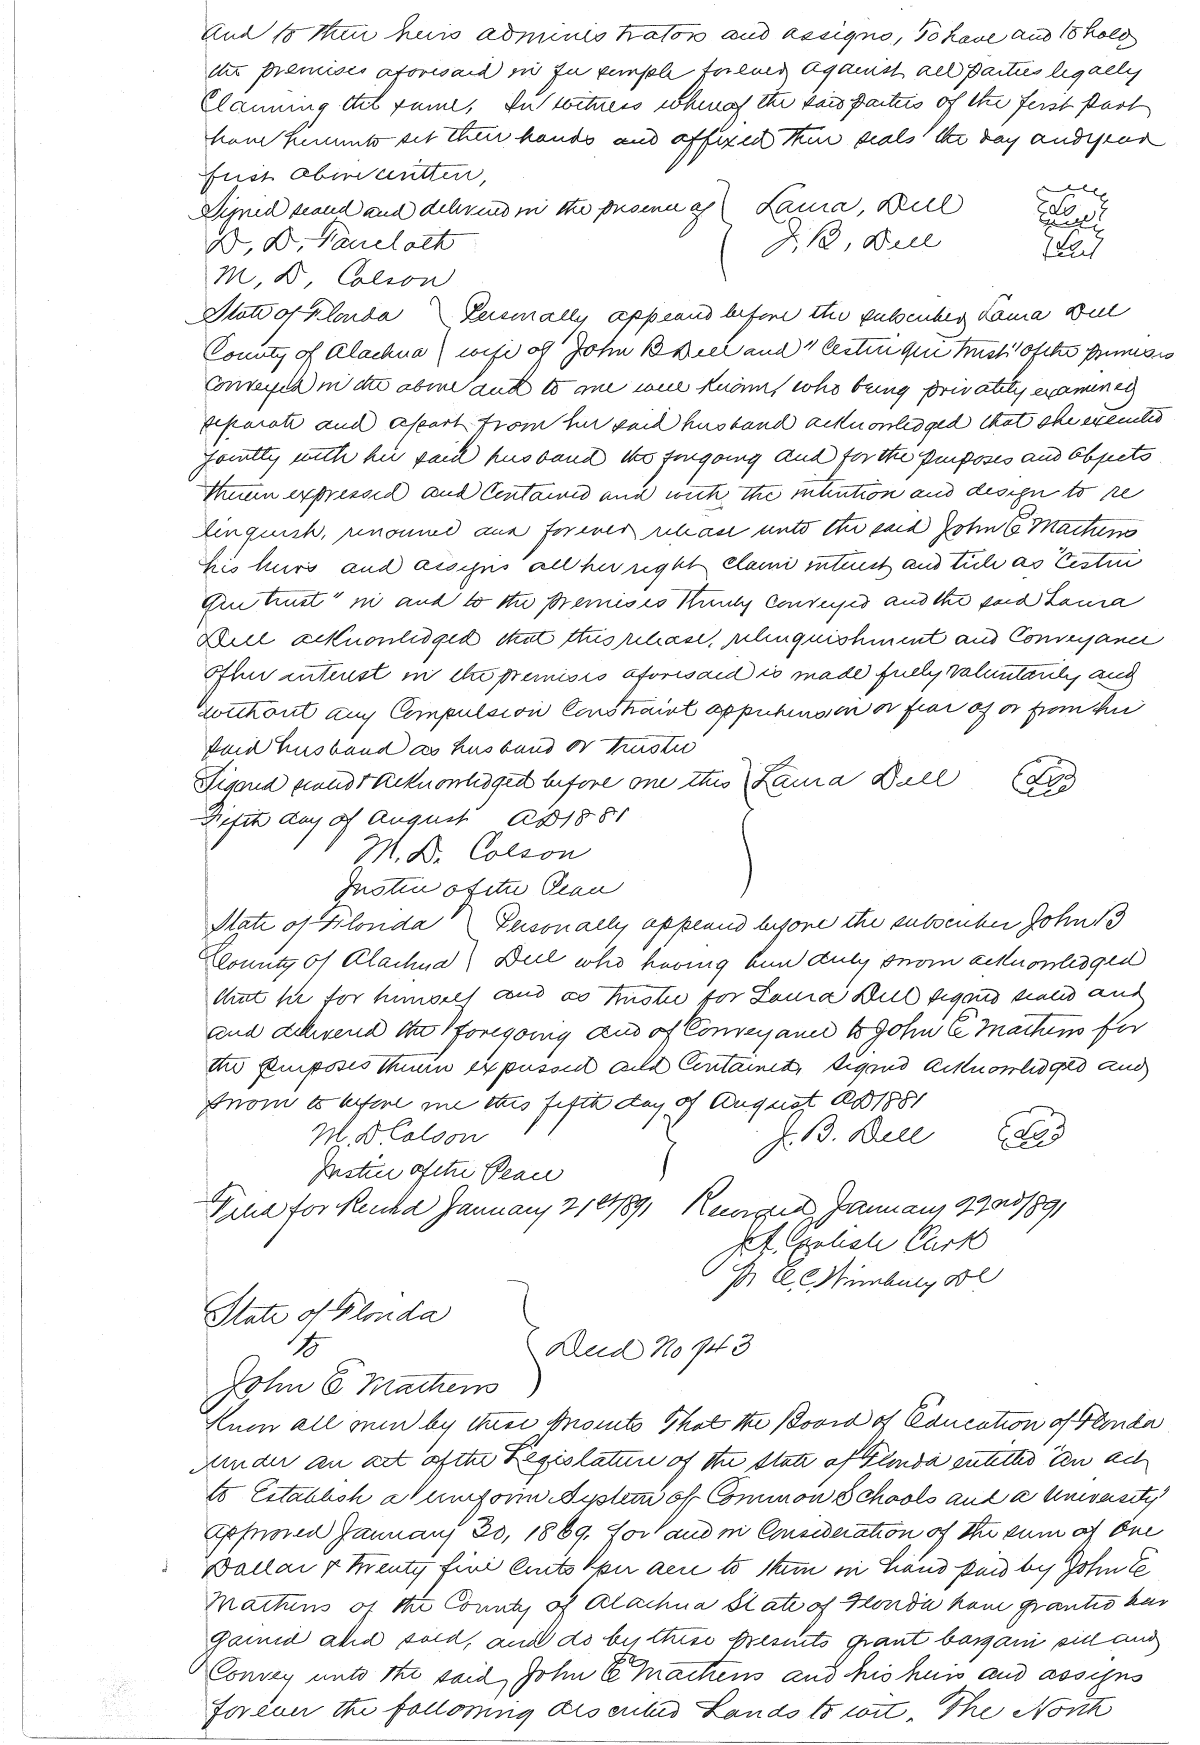 and to their heirs administrators and assigns, To have and to hold
the premises aforesaid in fee simple forever against all parties legally
Claiming the same, In witness whereof the said parties of the first part
have hereunto set their hands and affixed their seals the day and year
first above written,
Signed sealed and delivered in the presence of Laura, Dell
D, D, Faircloth J, B, Dell
M, D, Colson
State of Florida Personally appeared before the subscriber Laura Dell
County of Alachua wife of John B Dell and "Cestui Que trust" of the premises
Conveyed in the above and to me well Known, who being privately examined
separate and apart from her said husband acknowledged that she executed
jointly with her said husband the forgoing and for the purposes and objects
therein expressed and Contained and with the intention and design to re
linquish, renounce and forever release unto the said John E Mathews
his heirs and assigns all her right claim interest and title as "Cestui
Que trust" in and to the premises thereby conveyed and the said Laura
Dell acknowledged that this release, relinquishment and Conveyance
of her interest in the premises aforesaid is made freely voluntarily and
without any Compulsion Constraint apprehension or fear of or from her
said husband as husband or trustee
Signed sealed & Acknowledged before me this Laura Dell LS
Fifth day of August AD 1881
M. D. Colson
Justice of the Peace
State of Florida Personally appeared before the subscriber John B
County of Alachua Dell who having been duly sworn acknowledged
that he for himself and as trustee for Laura Dell signed sealed and
and delivered the foregoing deed of Conveyance to John E Mathews for
the purposes therein expressed and Contained, signed acknowledged and
sworn to before me this fifth day of August AD 1881
M. D. Colson J. B. Dell LS
Justice of the Peace
Filed for Record January 21st 1891 Recorded January 22nd 1891
Clerk
pr DC
State of Florida
to Deed No 743
John E Mathews
Know all men by these presents That the Board of Education of Florida
under an act of the Legislature of the state of Florida entitled "An act
to Establish a uniform System of Common Schools and a University"
approved January 30, 1869. for and in Consideration of the sum of One
Dollar & twenty five Cents per acre to them in hand paid by John E
Mathews of the County of Alachua State of Florida have granted bar
gained and sold, and do by these presents grant bargain sell and
Convey unto the said John E Mathews and his heirs and assigns
forever the following described Lands to wit. The North